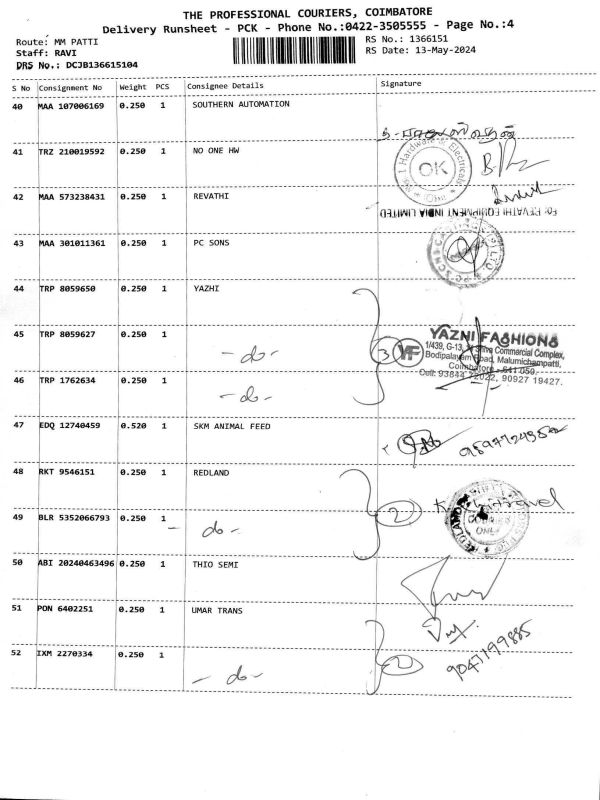 THE PROFESSIONAL COURIERS, COIMBATORE
Delivery Runsheet - PCK - Phone No.:0422-3505555 - Page No.:4
Route: MM PATTI
Staff: RAVI
DRS No.: DCJB136615104
RS No.: 1366151
RS Date: 13-May-2024
S No Consignment No Weight PCS Consignee Details Signature
40 MAA 107006169 0.250 1 SOUTHERN AUTOMATION
41 TRZ 210019592 0.250 1 NO ONE HW
No.1 Hardware & Electricals
OK
42 MAA 573238431 0.250 1 REVATHI
For REVATHI EQUIPMENT INDIA LIMITED
43 MAA 301011361 0.250 1 PC SONS
44 TRP 8059650 0.250 1 YAZHI
45 TRP 8059627 0.250 1 - do -
3 YF YAZNI FASHIONS
1/439, G-13, Commercial Complex,
Bodipalayam Road, Malumichampatti,
Coimbatore - 641 050.
Cell: 93844 72022, 90927 19427.
46 TRP 1762634 0.250 1 - do -
47 EDQ 12740459 0.520 1 SKM ANIMAL FEED
48 RKT 9546151 0.250 1 REDLAND
2
49 BLR 5352066793 0.250 1 - do -
50 ABI 20240463496 0.250 1 THIO SEMI
51 PON 6402251 0.250 1 UMAR TRANS
9047199885
52 IXM 2270334 0.250 1 - do - 2